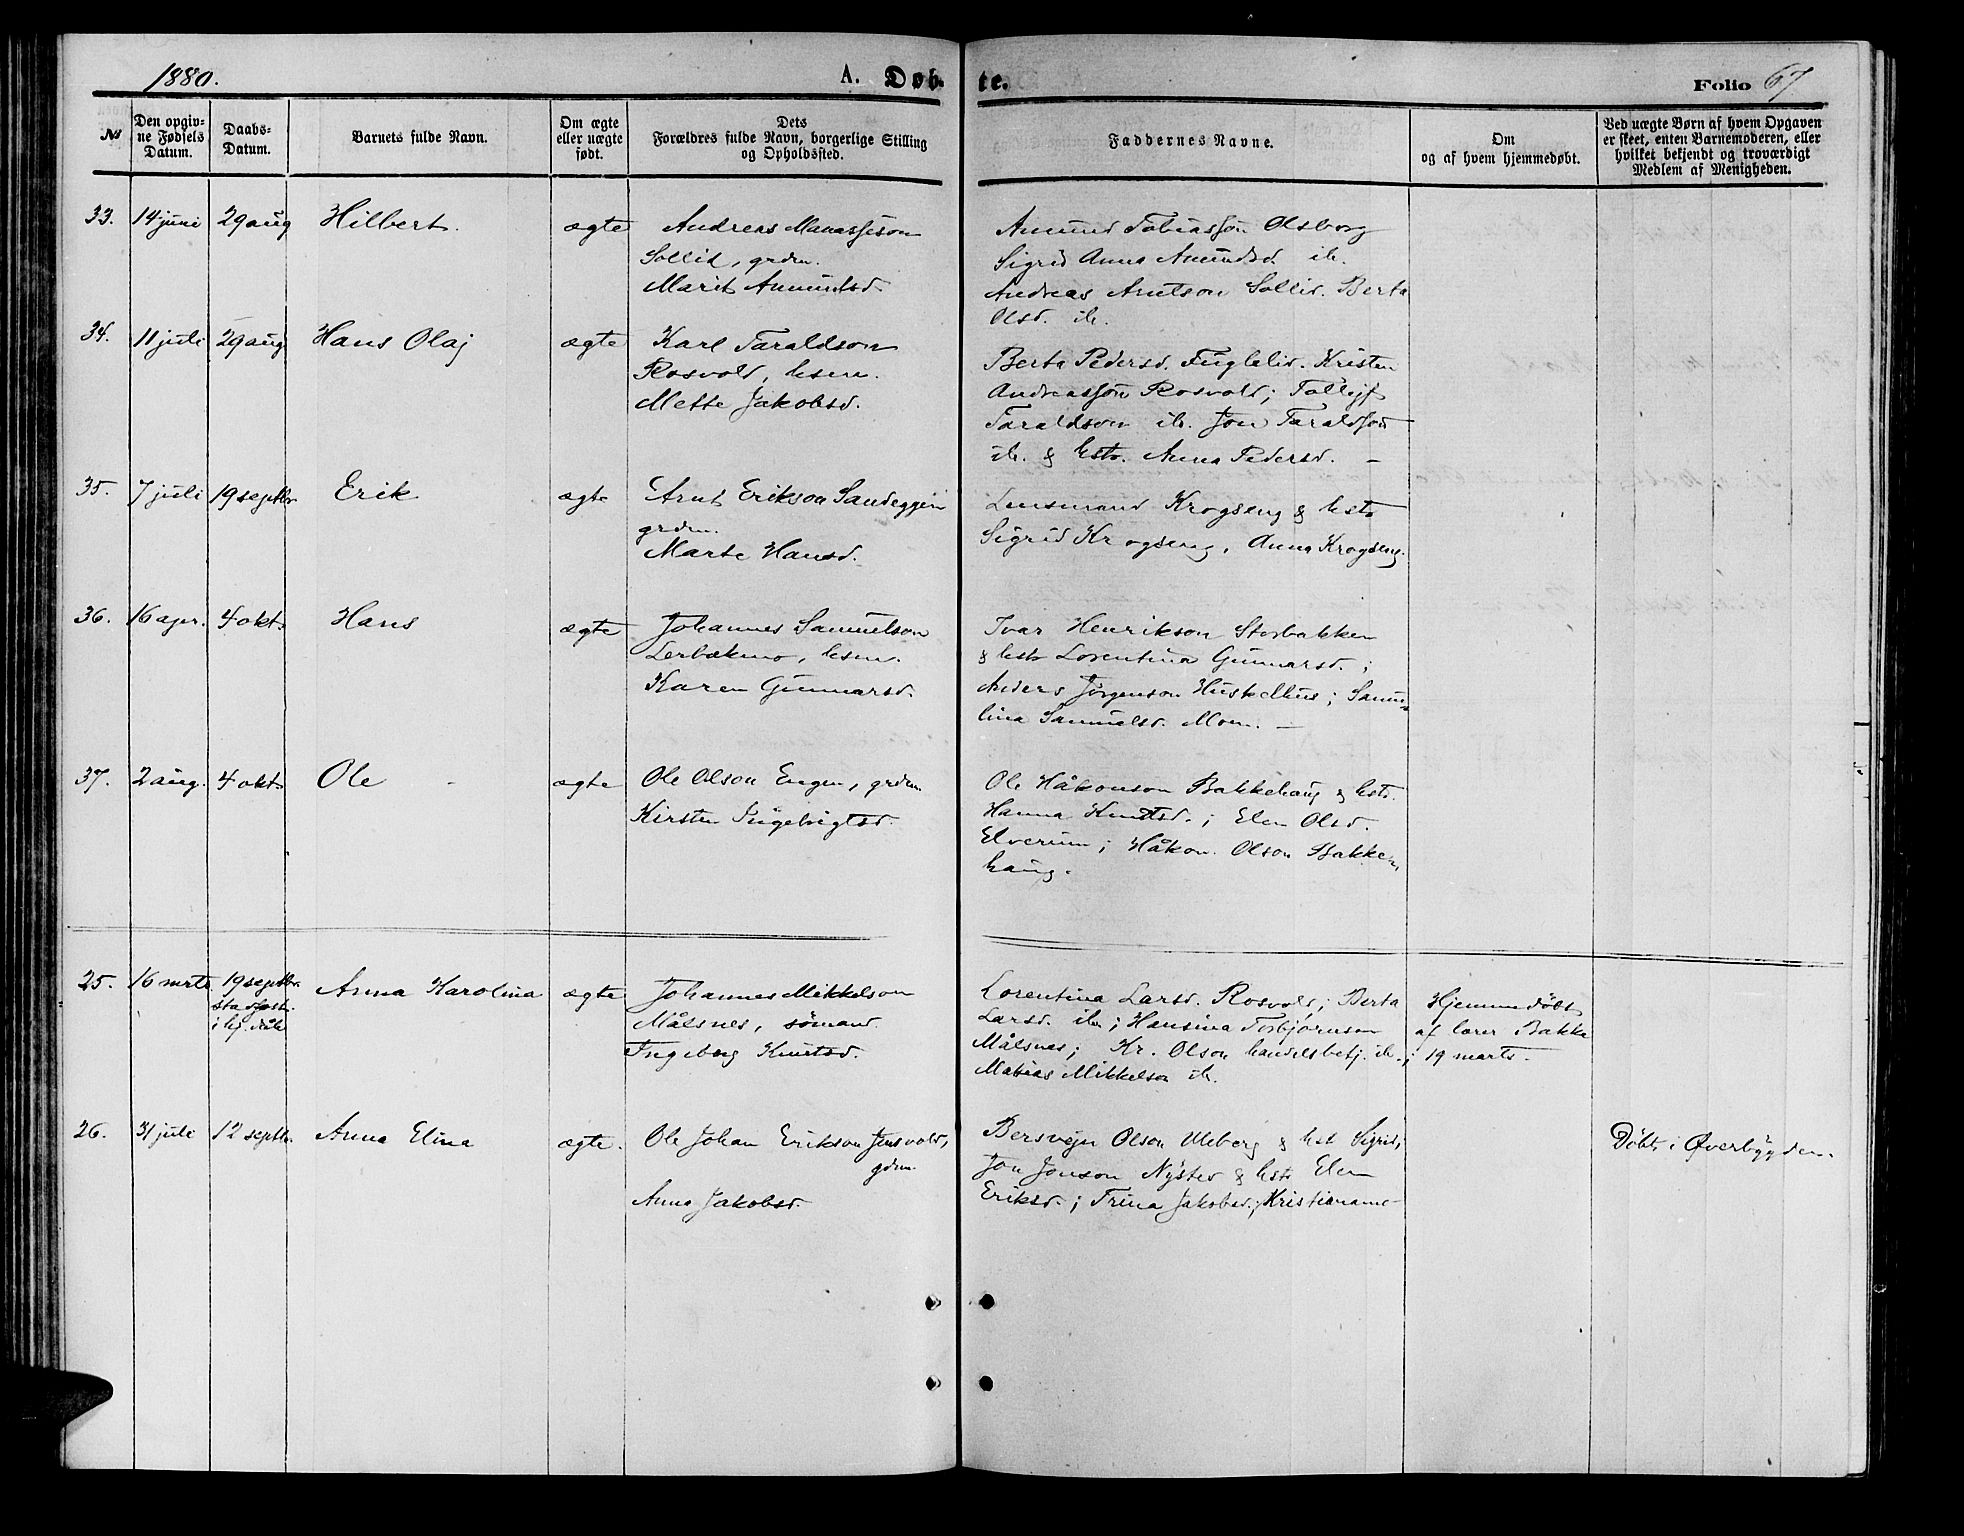 1880.
A. Døb-
te.
Folio 67
№
Den opgiv-
ne Fødsels
Datum.
Daabs-
Datum.
Barnets fulde Navn.
Om ægte
eller uægte
født.
Dets
Forældres fulde Navn, borgerlige Stilling
og Opholdssted.
Faddernes Navne.
Om
og af hvem hjemmedøbt.
Ved uægte Børn af hvem Opgaven
er skeet, enten Barnemoderen, eller
hvilket bekjendt og troværdigt
Medlem af Menigheden.
33. 14 juni 29 aug Hilbert. ægte
Andreas Manassesson
Sollid, grdm.
Marit Amundsd.
Amund Tobiasson Olsborg
Sigrid Anna Amundsd. ib.
Andreas Arntson Sollid. Berta
Olsd. ib.
34. 11 juli 29 aug Hans Olaj ægte
Karl Taraldson
Rosvold, hsm.
Mette Jakobsd.
Berta Pedersd. Fuglelid. Kristen
Andreasson Rosvold; Tollejf
Taraldson ib. Jon Taraldson
ib. & hstr. Anna Pedersd. –
35. 7 juli 19 septbr Erik ægte
Arnt Erikson Sandeggen
grdm.
Marte Hansd.
Lensmand Krogseng & hstr
Sigrid Krogseng, Anna Krogseng.
36. 16 apr. 4 okt. Hans ægte
Johannes Samuelson
Lerbækmo, hsm.
Karen Gunnarsd.
Ivar Henrikson Storbakken
& hstr Lorentina Gunnarsd.;
Anders Jørgenson Huskelhus; Samu-
lina Samuelsd. Moen. –
37. 2 aug. 4 okt. Ole – ægte
Ole Olson Engen, grdm.
Kirsten Ingebrigtsd.
Ole Håkonson Bakkehaug & hstr.
Hanna Knutsd.; Elen Olsd.
Elverum; Håkon Olson Bakke-
haug.
25. 16 mrts 19 septbr. Anna Karolina ægte
stadfæst.
i hj. dåb
Johannes Mikkelson
Målsnes, sömand.
Ingeborg Knutsd.
Lorentina Larsd. Rosvold; Berta
Larsd. ib; Hansina Torbjørnsen
Målsnes; Kr. Olson handelsbetj. ib.;
Matias Mikkelson ib.
Hjemmedöbt
af lærer Bakke
19 marts –
26. 31 juli 12 septbr. Anna Elina ægte.
Ole Johan Erikson Jensvold,
gdm.
Anna Jakobsd.
Bersvejn Olson Uleberg & hst Sigrid;
Jon Jonson Nysted & hstr Elen
Eriksd.; Trina Jakobsd.; Kristianane
Döbt i Øverbygden.